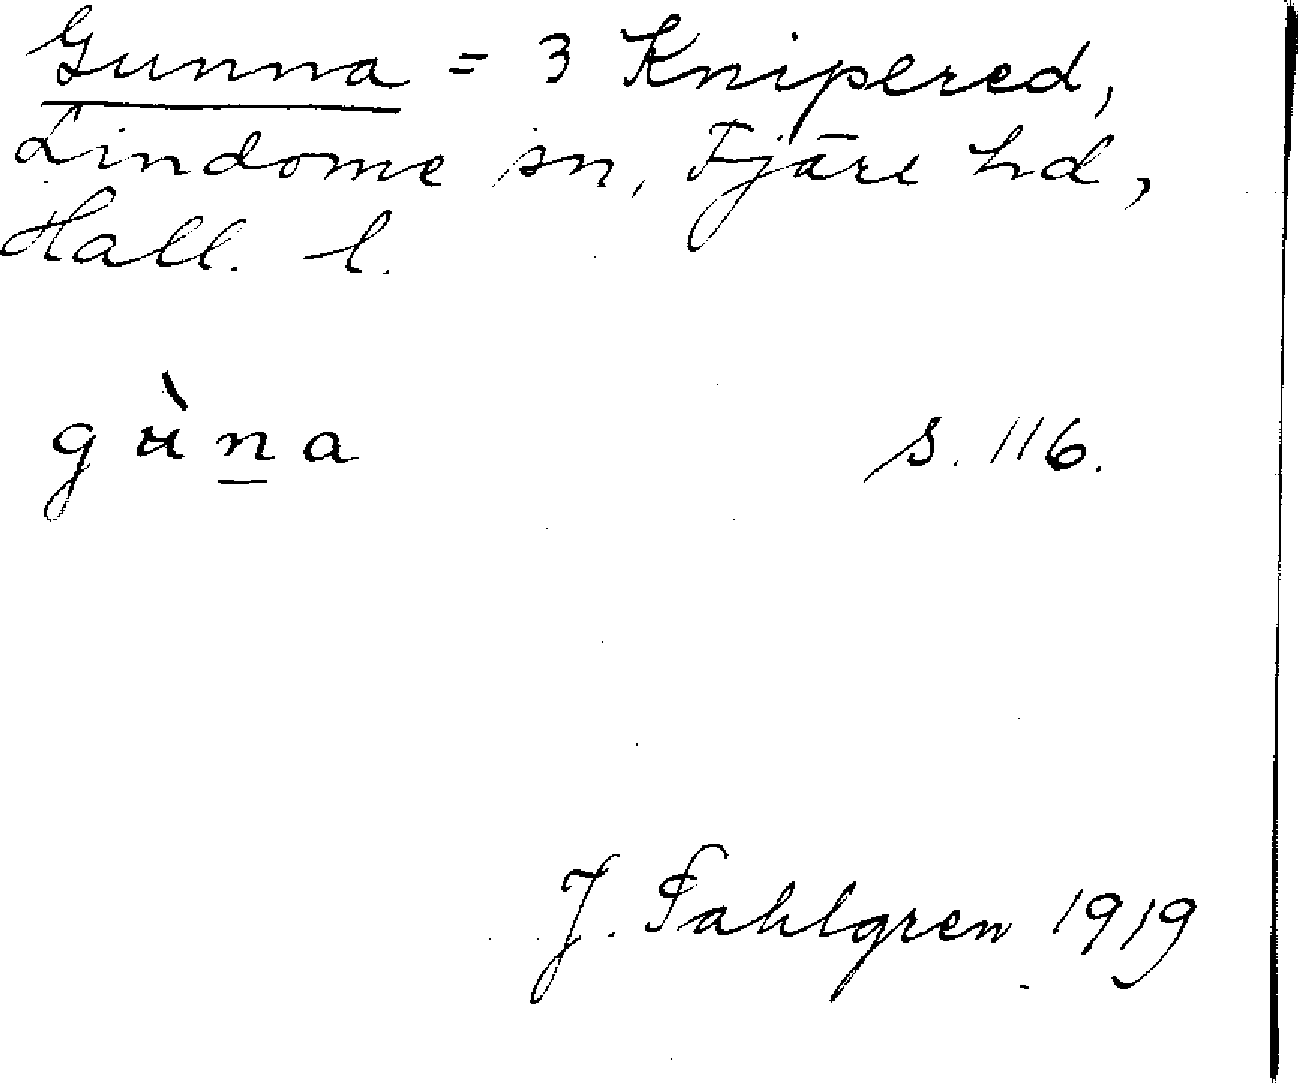 Gunna = 3 Knipered,
Lindome sn, Fjäre hd,
Hall. l.
gùṉa s. 116.
J. Sahlgren 1919